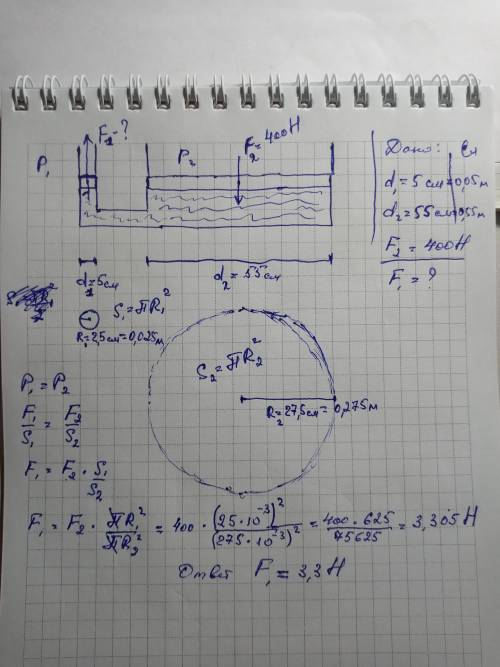 F₁-?
P₁
P₂
F₂=400H
d₁=5см
d₂=55см
Дано: Си
d₁=5см=0,05м
d₂=55см=0,55м
F₂=400H
F₁=?
S₁=πR₁²
R₁=2,5см=0,025м
S₂=πR₂²
R₂=27,5см=0,275м
P₁=P₂
F₁/S₁=F₂/S₂
F₁=F₂·S₁/S₂
F₁=F₂·πR₁²/πR₂²=400·(25·10⁻³)²/(275·10⁻³)²=400·625/75625=3,305H
Ответ F₁=3,3H